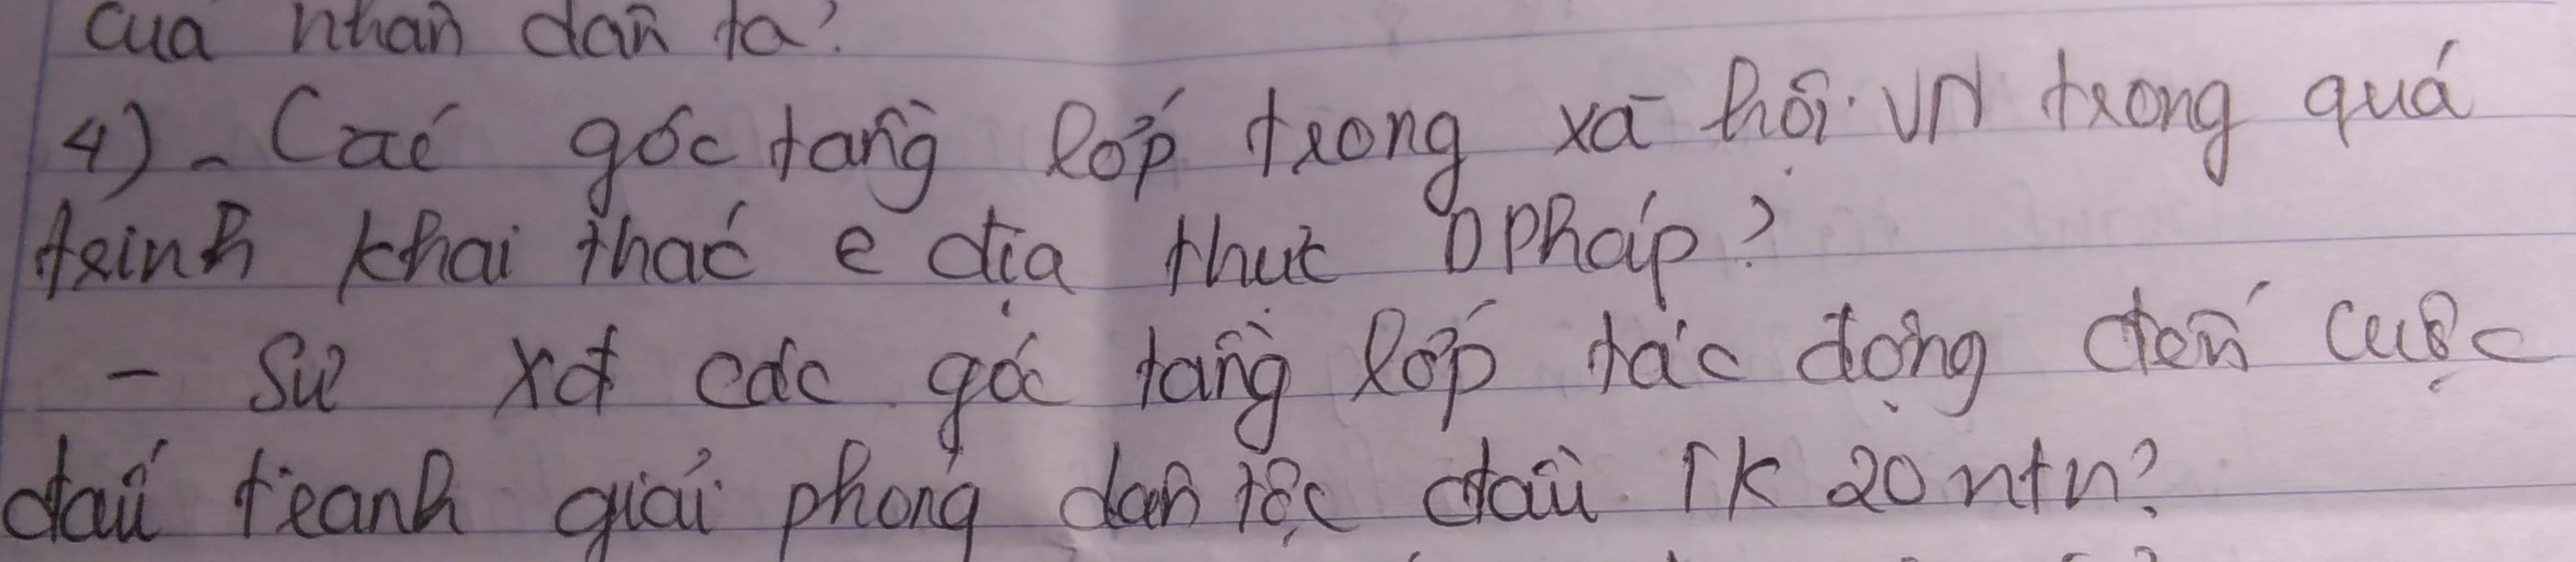 của nhân dân ta?
4) - Các gốc tầng lớp trong xã hội VN trong quá
trình khai thác c địa thực D Pháp?
- Sự xđ các gốc tầng lớp tác động đến cuộc
đấu tranh giải phóng dân tộc đầu TK 20 ntn?